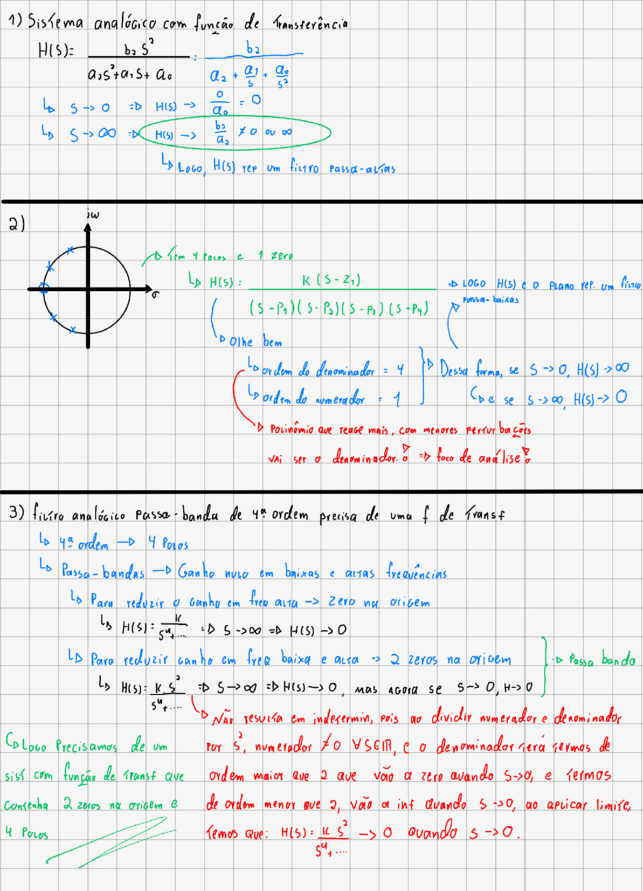 1) Sistema analógico com função de Transferência
H(s) = b₂ s² / a₂s²+a₁s+a₀ = b₂ / a₂ + a₁/s + a₀/s²
↳ s → 0 ⇒ H(s) → 0/a₀ = 0
↳ s → ∞ ⇒ H(s) → b₂/a₂ ≠ 0 ou ∞
↳ Logo, H(s) rep um filtro passa-altas
2)
jω
σ
↳ Tem 4 polos e 1 zero
↳ H(s) : K (s - z₁) / (s - p₁)(s - p₂)(s - p₃)(s - p₄)
↳ LOGO H(s) e o plano rep. um filtro
passa-baixas
↳ Olhe bem
↳ ordem do denominador = 4
↳ ordem do numerador = 1
↳ Dessa forma, se s → 0, H(s) → ∞
↳ e se s → ∞, H(s) → 0
↳ Polinômio que reage mais, com menores perturbações
vai ser o denominador! ⇒ foco de análise!
3) filtro analógico passa-banda de 4ª ordem precisa de uma f de Transf
↳ 4ª ordem → 4 Polos
↳ Passa-bandas → Ganho nulo em baixas e altas frequências
↳ Para reduzir o ganho em freq alta → zero na origem
↳ H(s) : K / s⁴+.... ⇒ s → ∞ ⇒ H(s) → 0
↳ Para reduzir ganho em freq baixa e alta → 2 zeros na origem
↳ Passa banda
↳ H(s) : K.s² / s⁴+.... ⇒ s → ∞ ⇒ H(s) → 0, mas agora se s → 0, H → 0
↳ Não resulta em indetermin, pois ao dividir numerador e denominador
por s², numerador ≠ 0 ∀ s∈ℝ, e o denominador terá termos de
ordem maior que 2 que vão a zero quando s→0, e termos
de ordem menor que 2, vão a inf quando s → 0, ao aplicar limite,
temos que: H(s) : K s² / s⁴+.... → 0 quando s → 0.
↳ Logo precisamos de um
sist com função de transf que
contenha 2 zeros na origem e
4 Polos